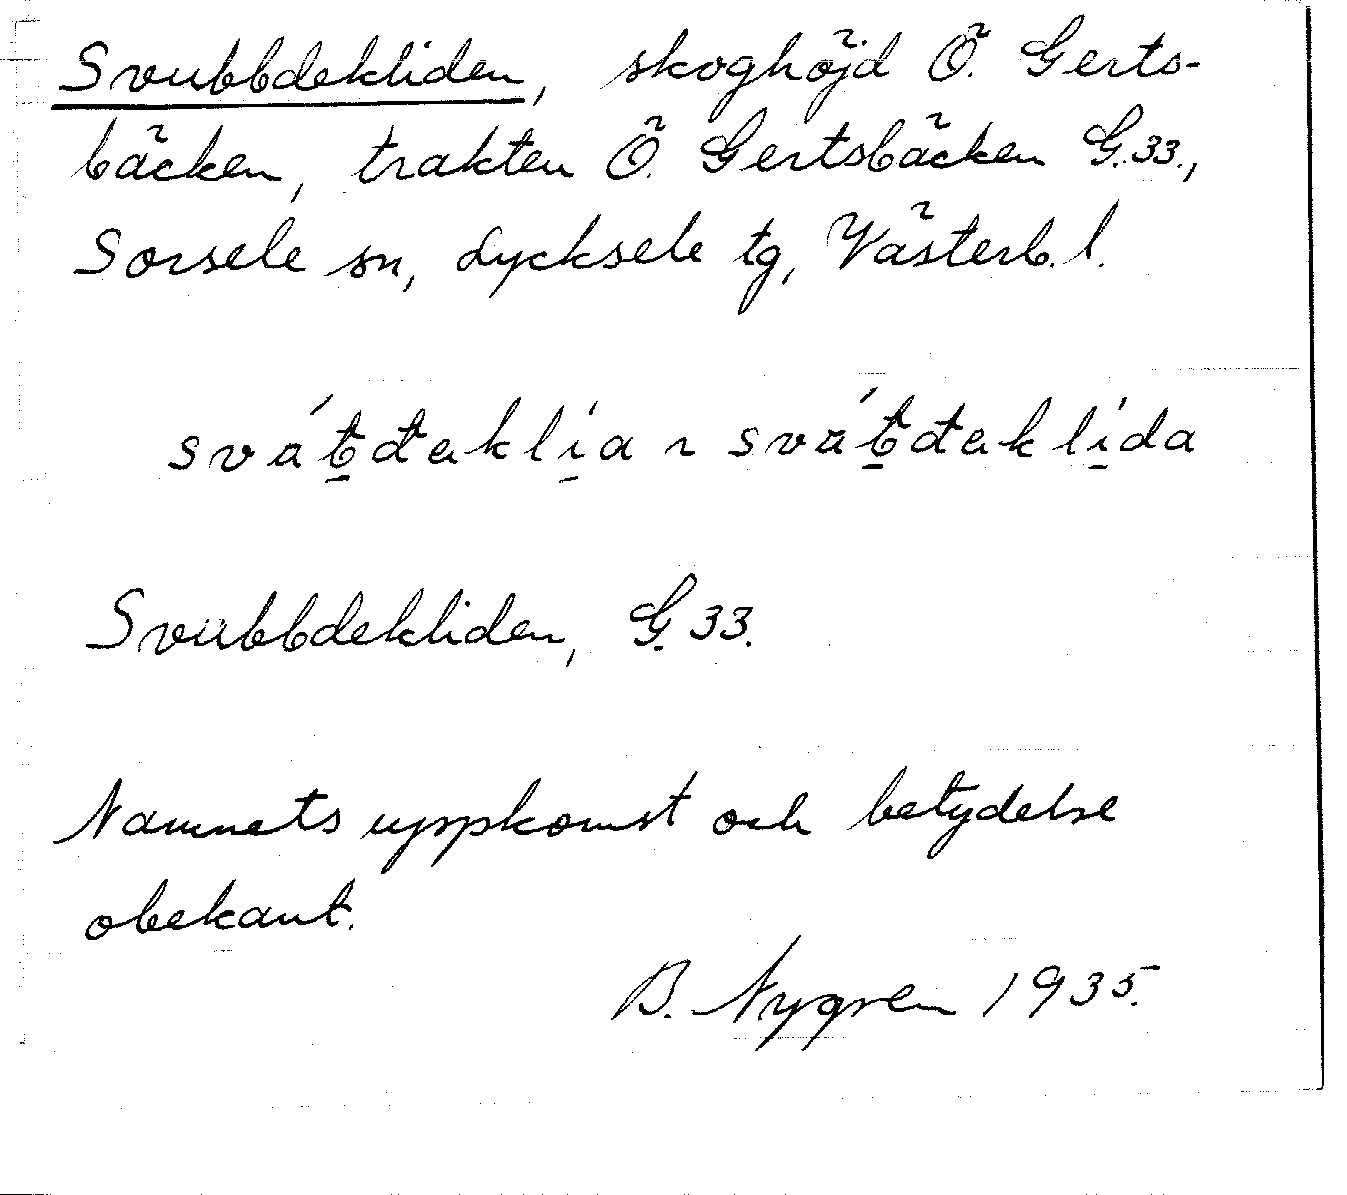 Svubbdekliden, skoghöjd Ö. Gerts-
bäcken, trakten Ö. Gertsbäcken G. 33.,
Sorsele sn, Lycksele tg, Västerb. l.
Svubbdekliden, G. 33.
Namnets uppkomst och betydelse
obekant.
B. Nygren 1935.